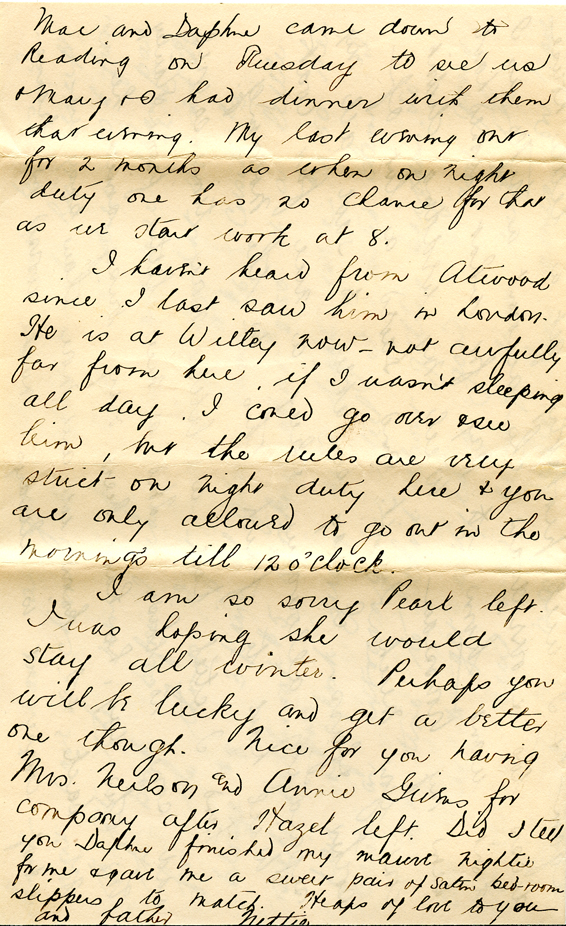 Mae and Daphne came down to
Reading on Tuesday to see us
& Mary & I had dinner with them
that evening. My last evening out
for 2 months as when on night
duty one has no chance for that
as we start work at 8.
I haven't heard from Atwood
since I last saw him in London.
He is at Witley now - not awfully
far from here, if I wasn't sleeping
all day. I could go over & see
him, but the rules are very
strict on night duty here & you
are only allowed to go out in the
mornings till 12 o'clock.
I am so sorry Pearl left.
I was hoping she would
stay all winter. Perhaps you
will be lucky and get a better
one though. Nice for you having
Mrs. Neilson and Annie Givens for
company after Hazel left. Did I tell
you Daphne finished my mauve nightie
for me & gave me a sweet pair of satin bed-room
slippers to match. Heaps of love to you
and father Nettie